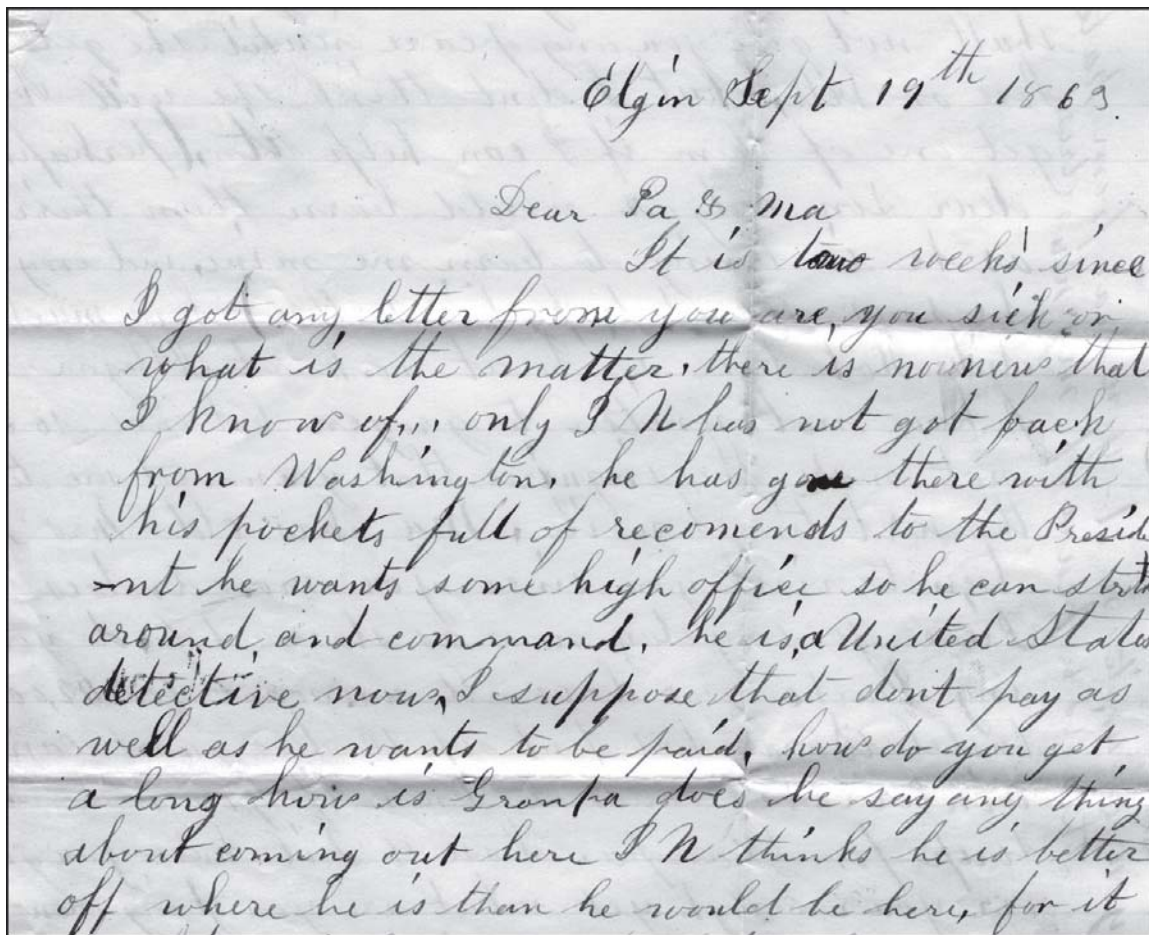 Elgin Sept 19th 1863
Dear Pa & Ma
It is two weeks since
I got any letter from you are, you sick or
what is the matter, there is no news that
I know of,,, only I N has not got back
from Washington, he has gone there with
his pockets full of recomends to the Preside
-nt he wants some high office so he can strut
around, and command, he is, a United States
detective now, I suppose that dont pay as
well as he wants to be paid, how do you get
a long how is Granpa does he say any thing
about coming out here I N thinks he is better
off where he is than he would be here, for it